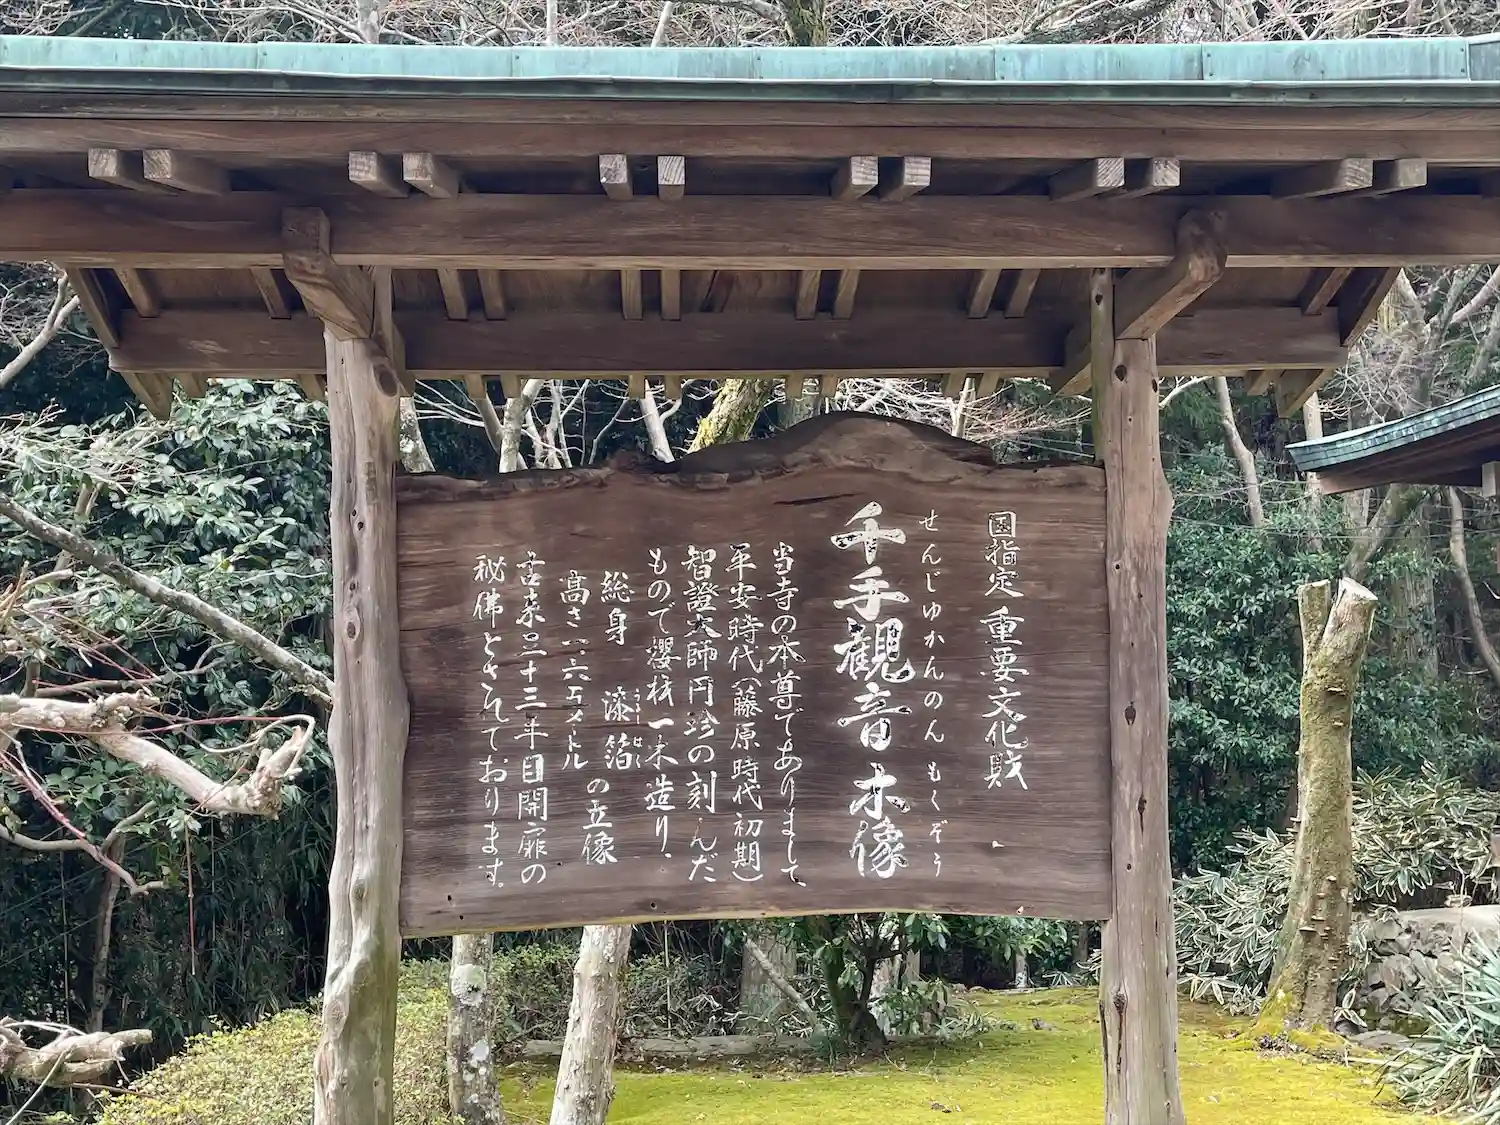 国指定 重要文化財
せんじゅかんのん もくぞう
千手観音木像
当寺の本尊でありまして、
平安時代(藤原時代初期)
智證大師円珍の刻んだ
もので櫻材一木造り、
総身 漆箔の立像
うるしはく
高さ一、六五メートル
古来三十三年目開扉の
秘佛とされております。